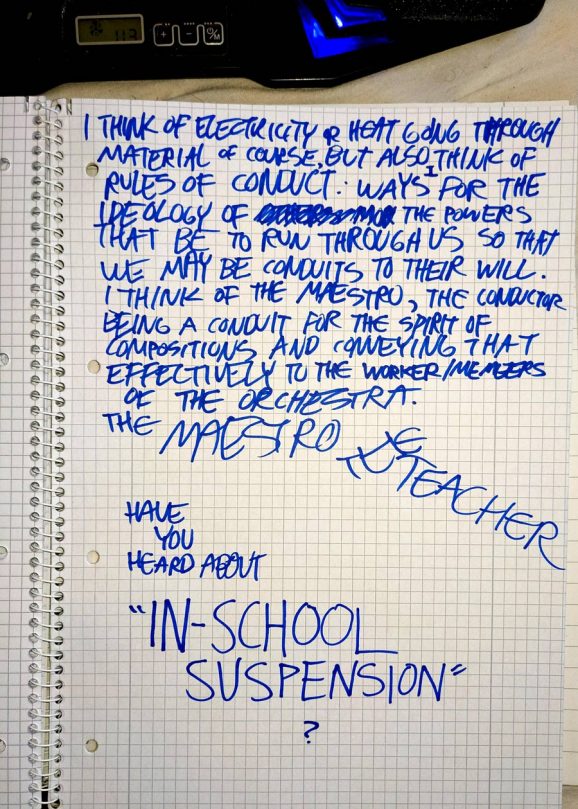 113
+ - %
I THINK OF ELECTRICITY OR HEAT GOING THROUGH
MATERIAL OF COURSE, BUT ALSO I THINK OF
RULES OF CONDUCT. WAYS FOR THE
IDEOLOGY OF THE POWERS
THAT BE TO RUN THROUGH US SO THAT
WE MAY BE CONDUITS TO THEIR WILL.
I THINK OF THE MAESTRO, THE CONDUCTOR
BEING A CONDUIT FOR THE SPIRIT OF
COMPOSITIONS AND CONVEYING THAT
EFFECTIVELY TO THE WORKER/MEMBERS
OF THE ORCHESTRA.
THE MAESTRO THE TEACHER
HAVE
YOU
HEARD ABOUT
"IN-SCHOOL
SUSPENSION"
?